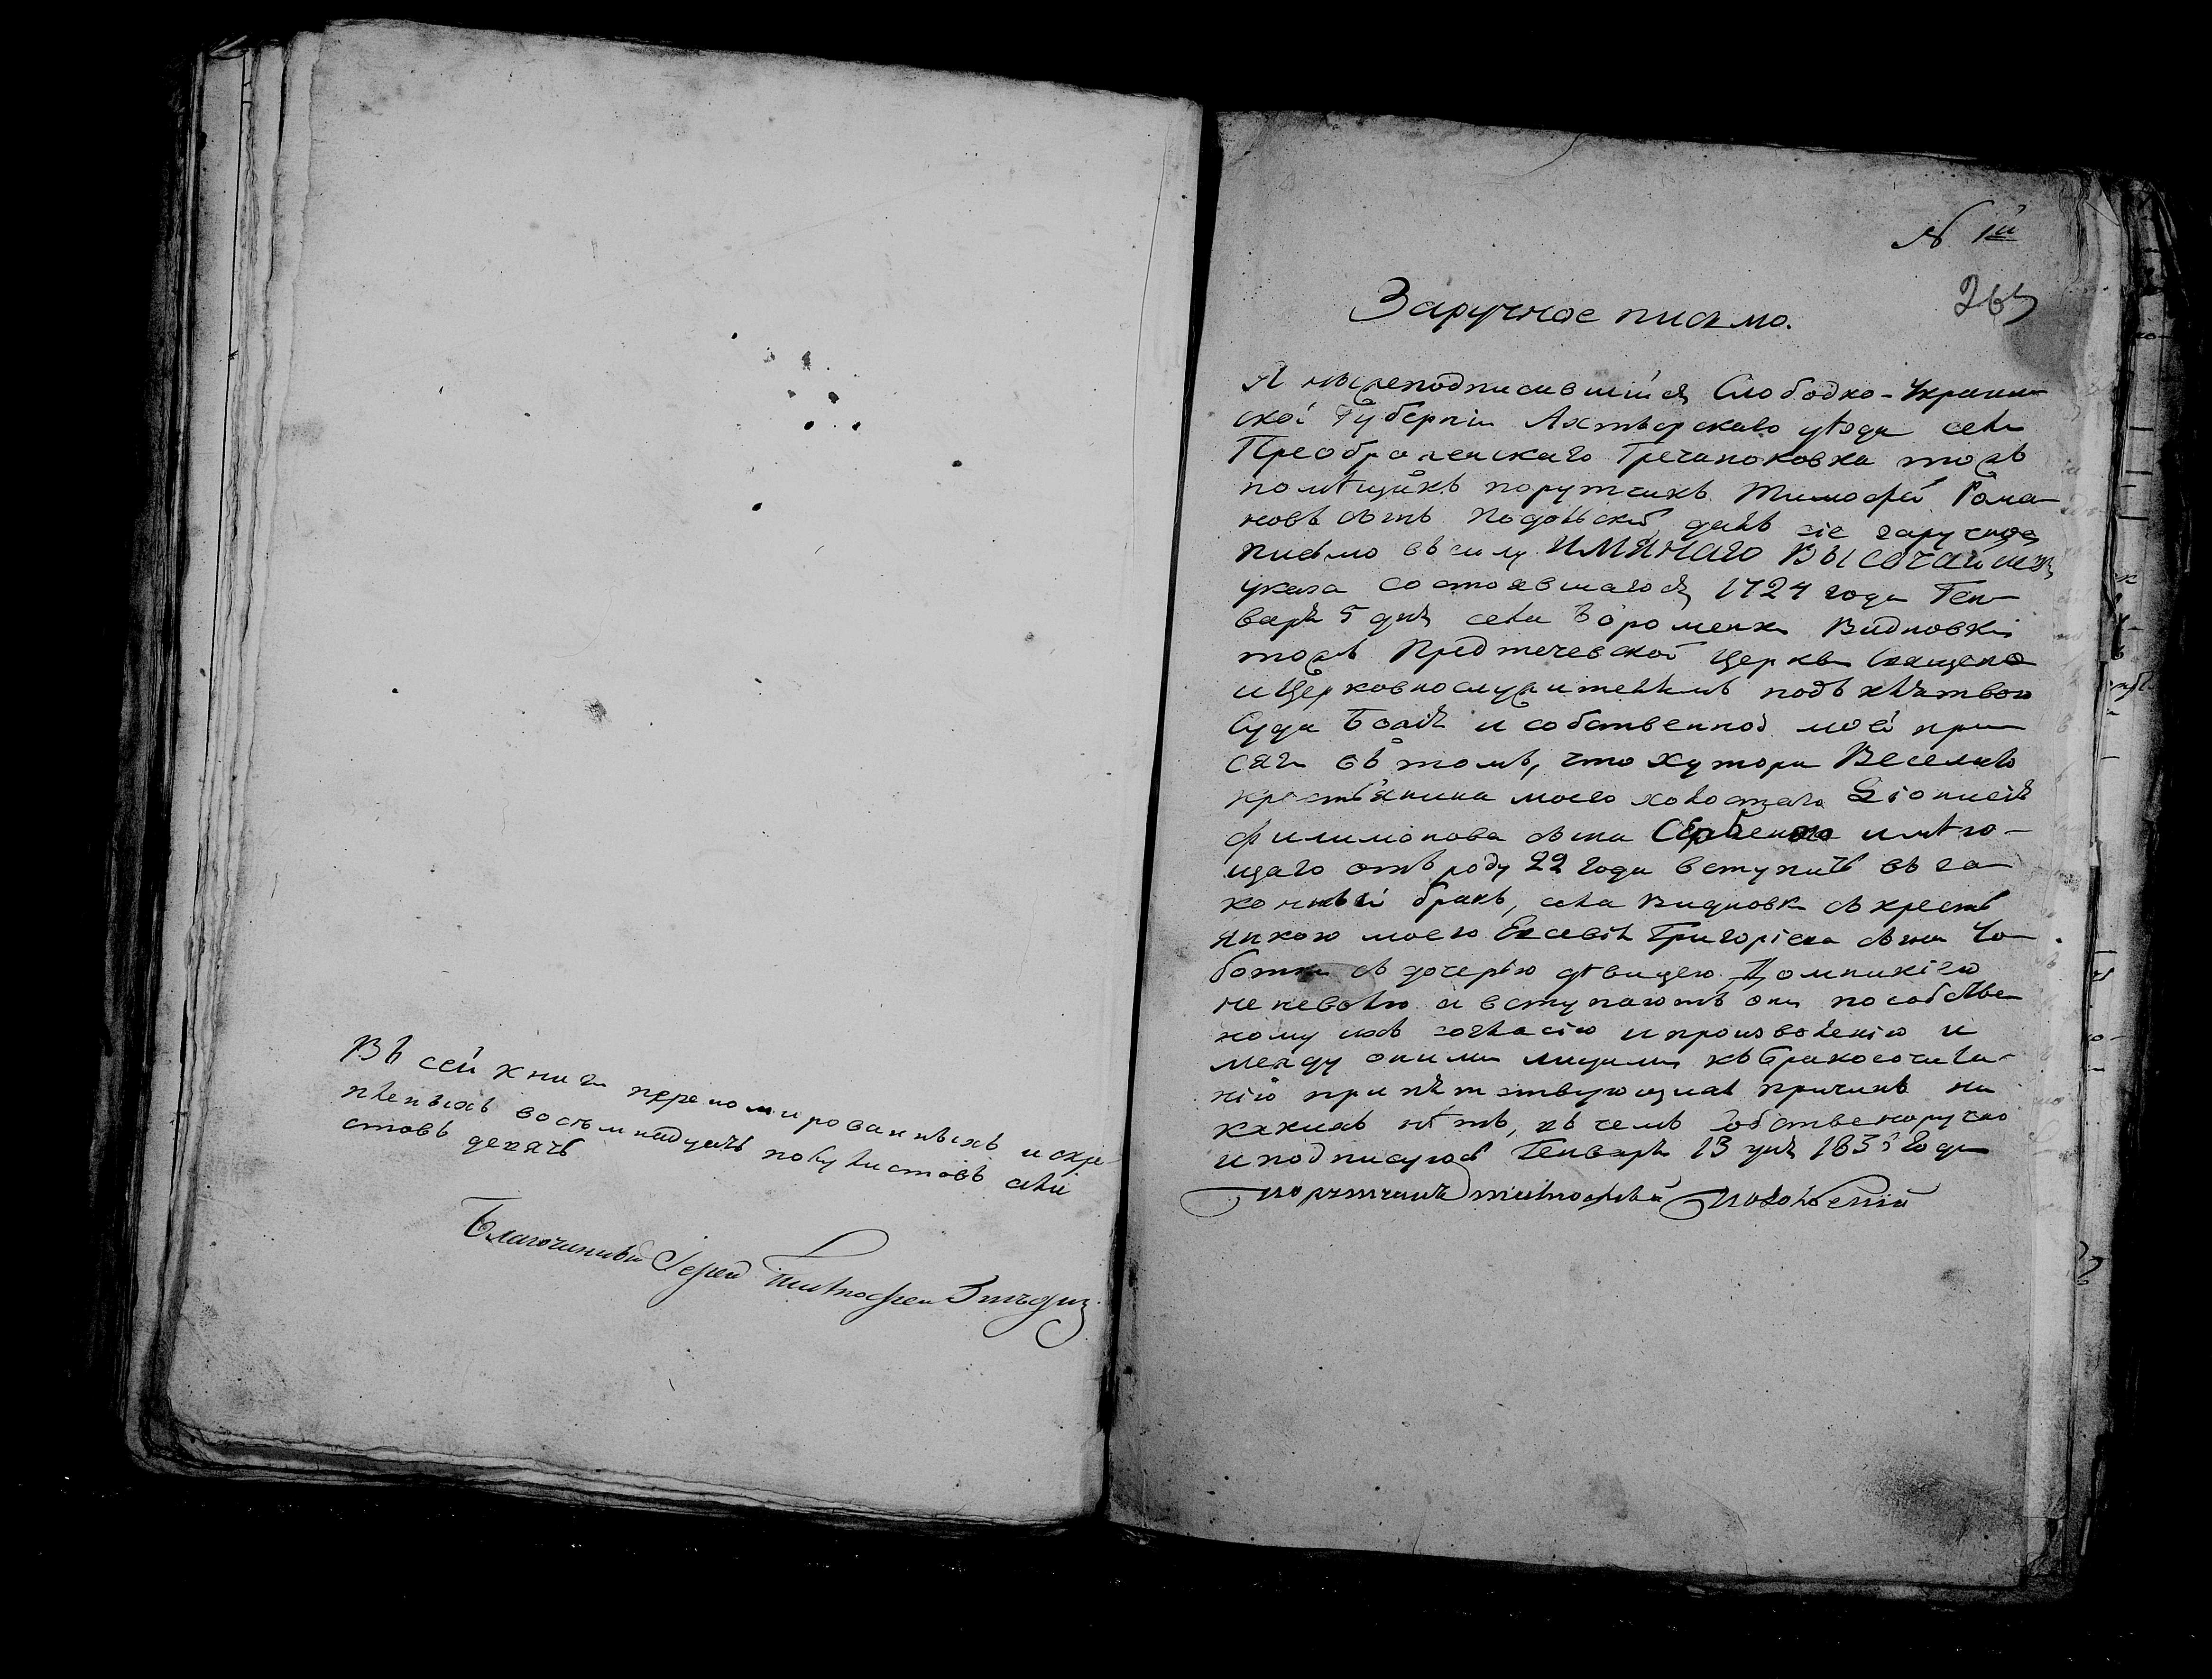 Въ сей книги перепомированныхъ и скре-
пленыхъ восемнадцать полулистовъ сели
стовъ десять
Благочинный Іерей Тимофей
№ 1й
265
Заручное письмо.
Я нижеподписавшійся Слободко-Украин-
ской Губерніи Ахтырскаго уѣзда села
Преображенскаго Гречаноковка тожъ
помѣщикъ порутчикъ Тимофей Рома-
новъ сынъ Подольскій, далъ сіе заручное
письмо въ силу ИМЯНАГО ВЫСОЧАЙШАГО
указа состоявшагося 1724 года Ген-
варя 5 дня села Бороменки Видновки
тожъ Предтечевской Церкви Священо
и Церковнослужителямъ подъ клятвою
Суда Божія и собственной моей при-
сяги въ томъ, что хутора Веселаго
крестьянина моего холостаго Діонисія
Филимонова сына имѣю-
щаго отъ роду 22 года вступить въ за-
конный бракъ, села Видновки съ крестъ
янкою моего Евсевія Григоріева сына Чо-
ботка съ дочерью дѣвицею Домникіею
не неволю а вступаютъ они по собстве-
ному ихъ согласію и произволенію и
между оними лицами къ бракосочета-
нію припятствующихъ причинъ ни
какихъ нѣтъ, въ чемъ собственоручно
и подписуюсь Генваря 13 дня 1835 года
порутчикъ Тимофей Подольскій